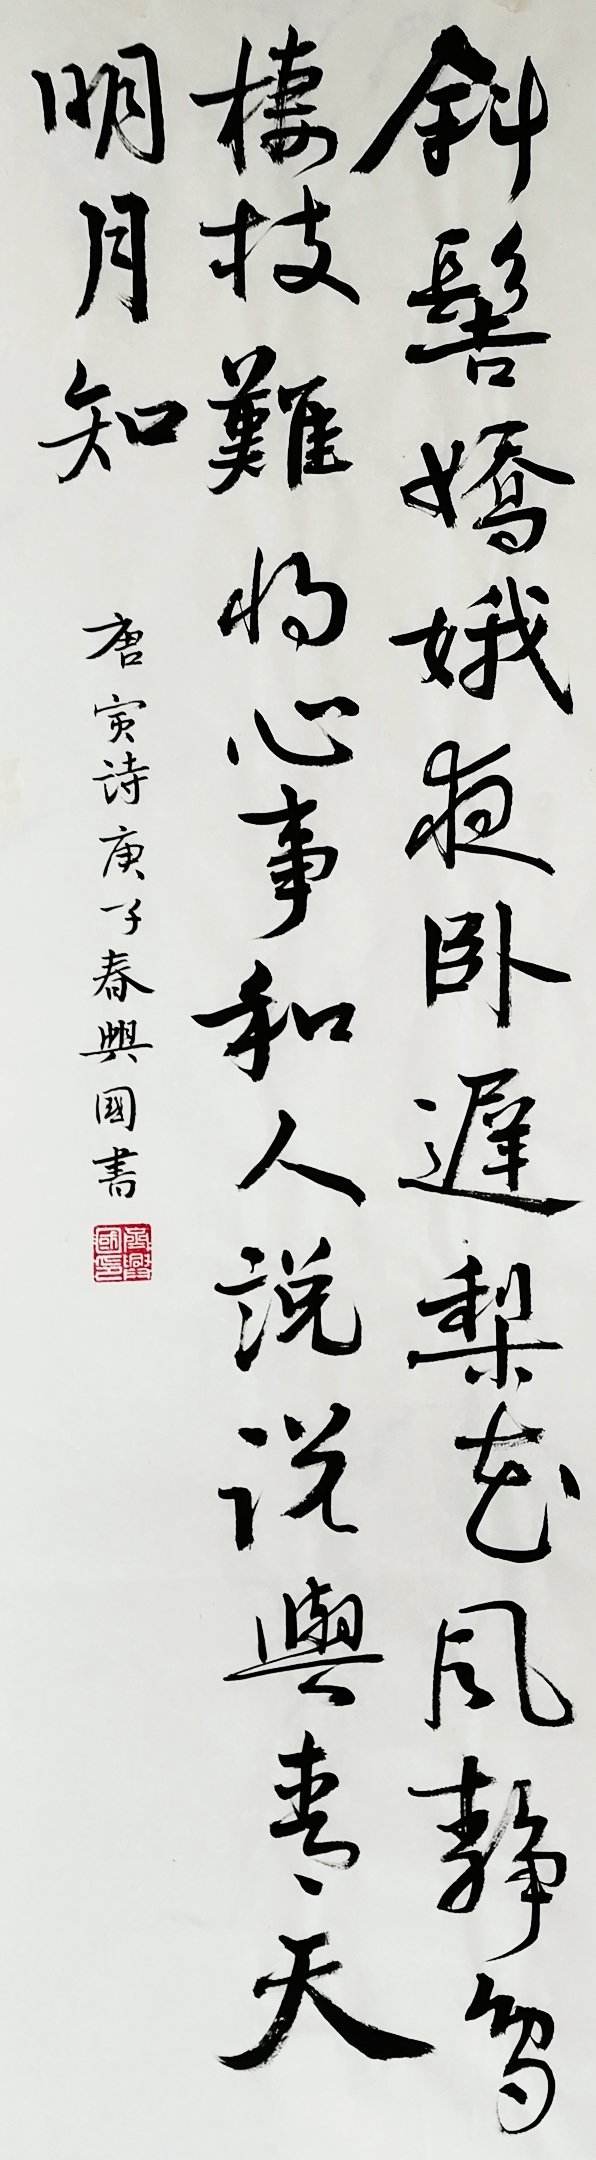 斜髻嬌娥夜卧遲梨花風靜鳥
棲枝難將心事和人説説與青天
明月知
唐寅詩庚子春興國書